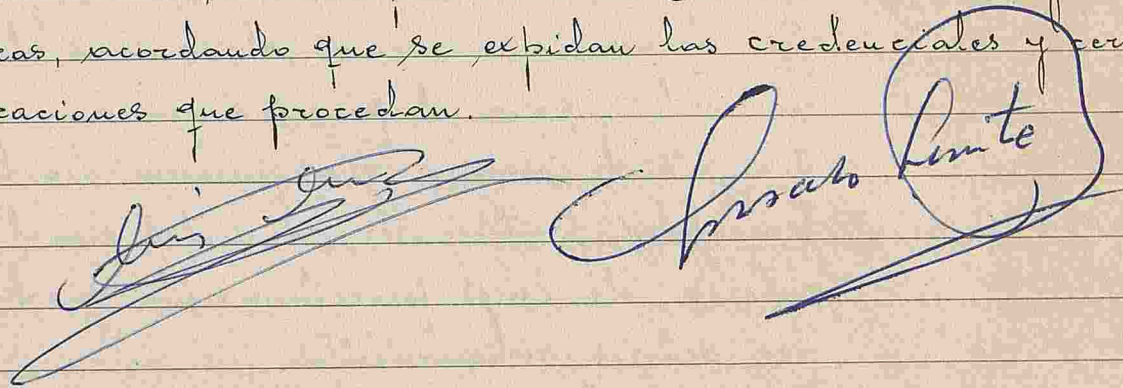 cas, acordando que se expidan las credenciales y cer
caciones que procedan.
Luis